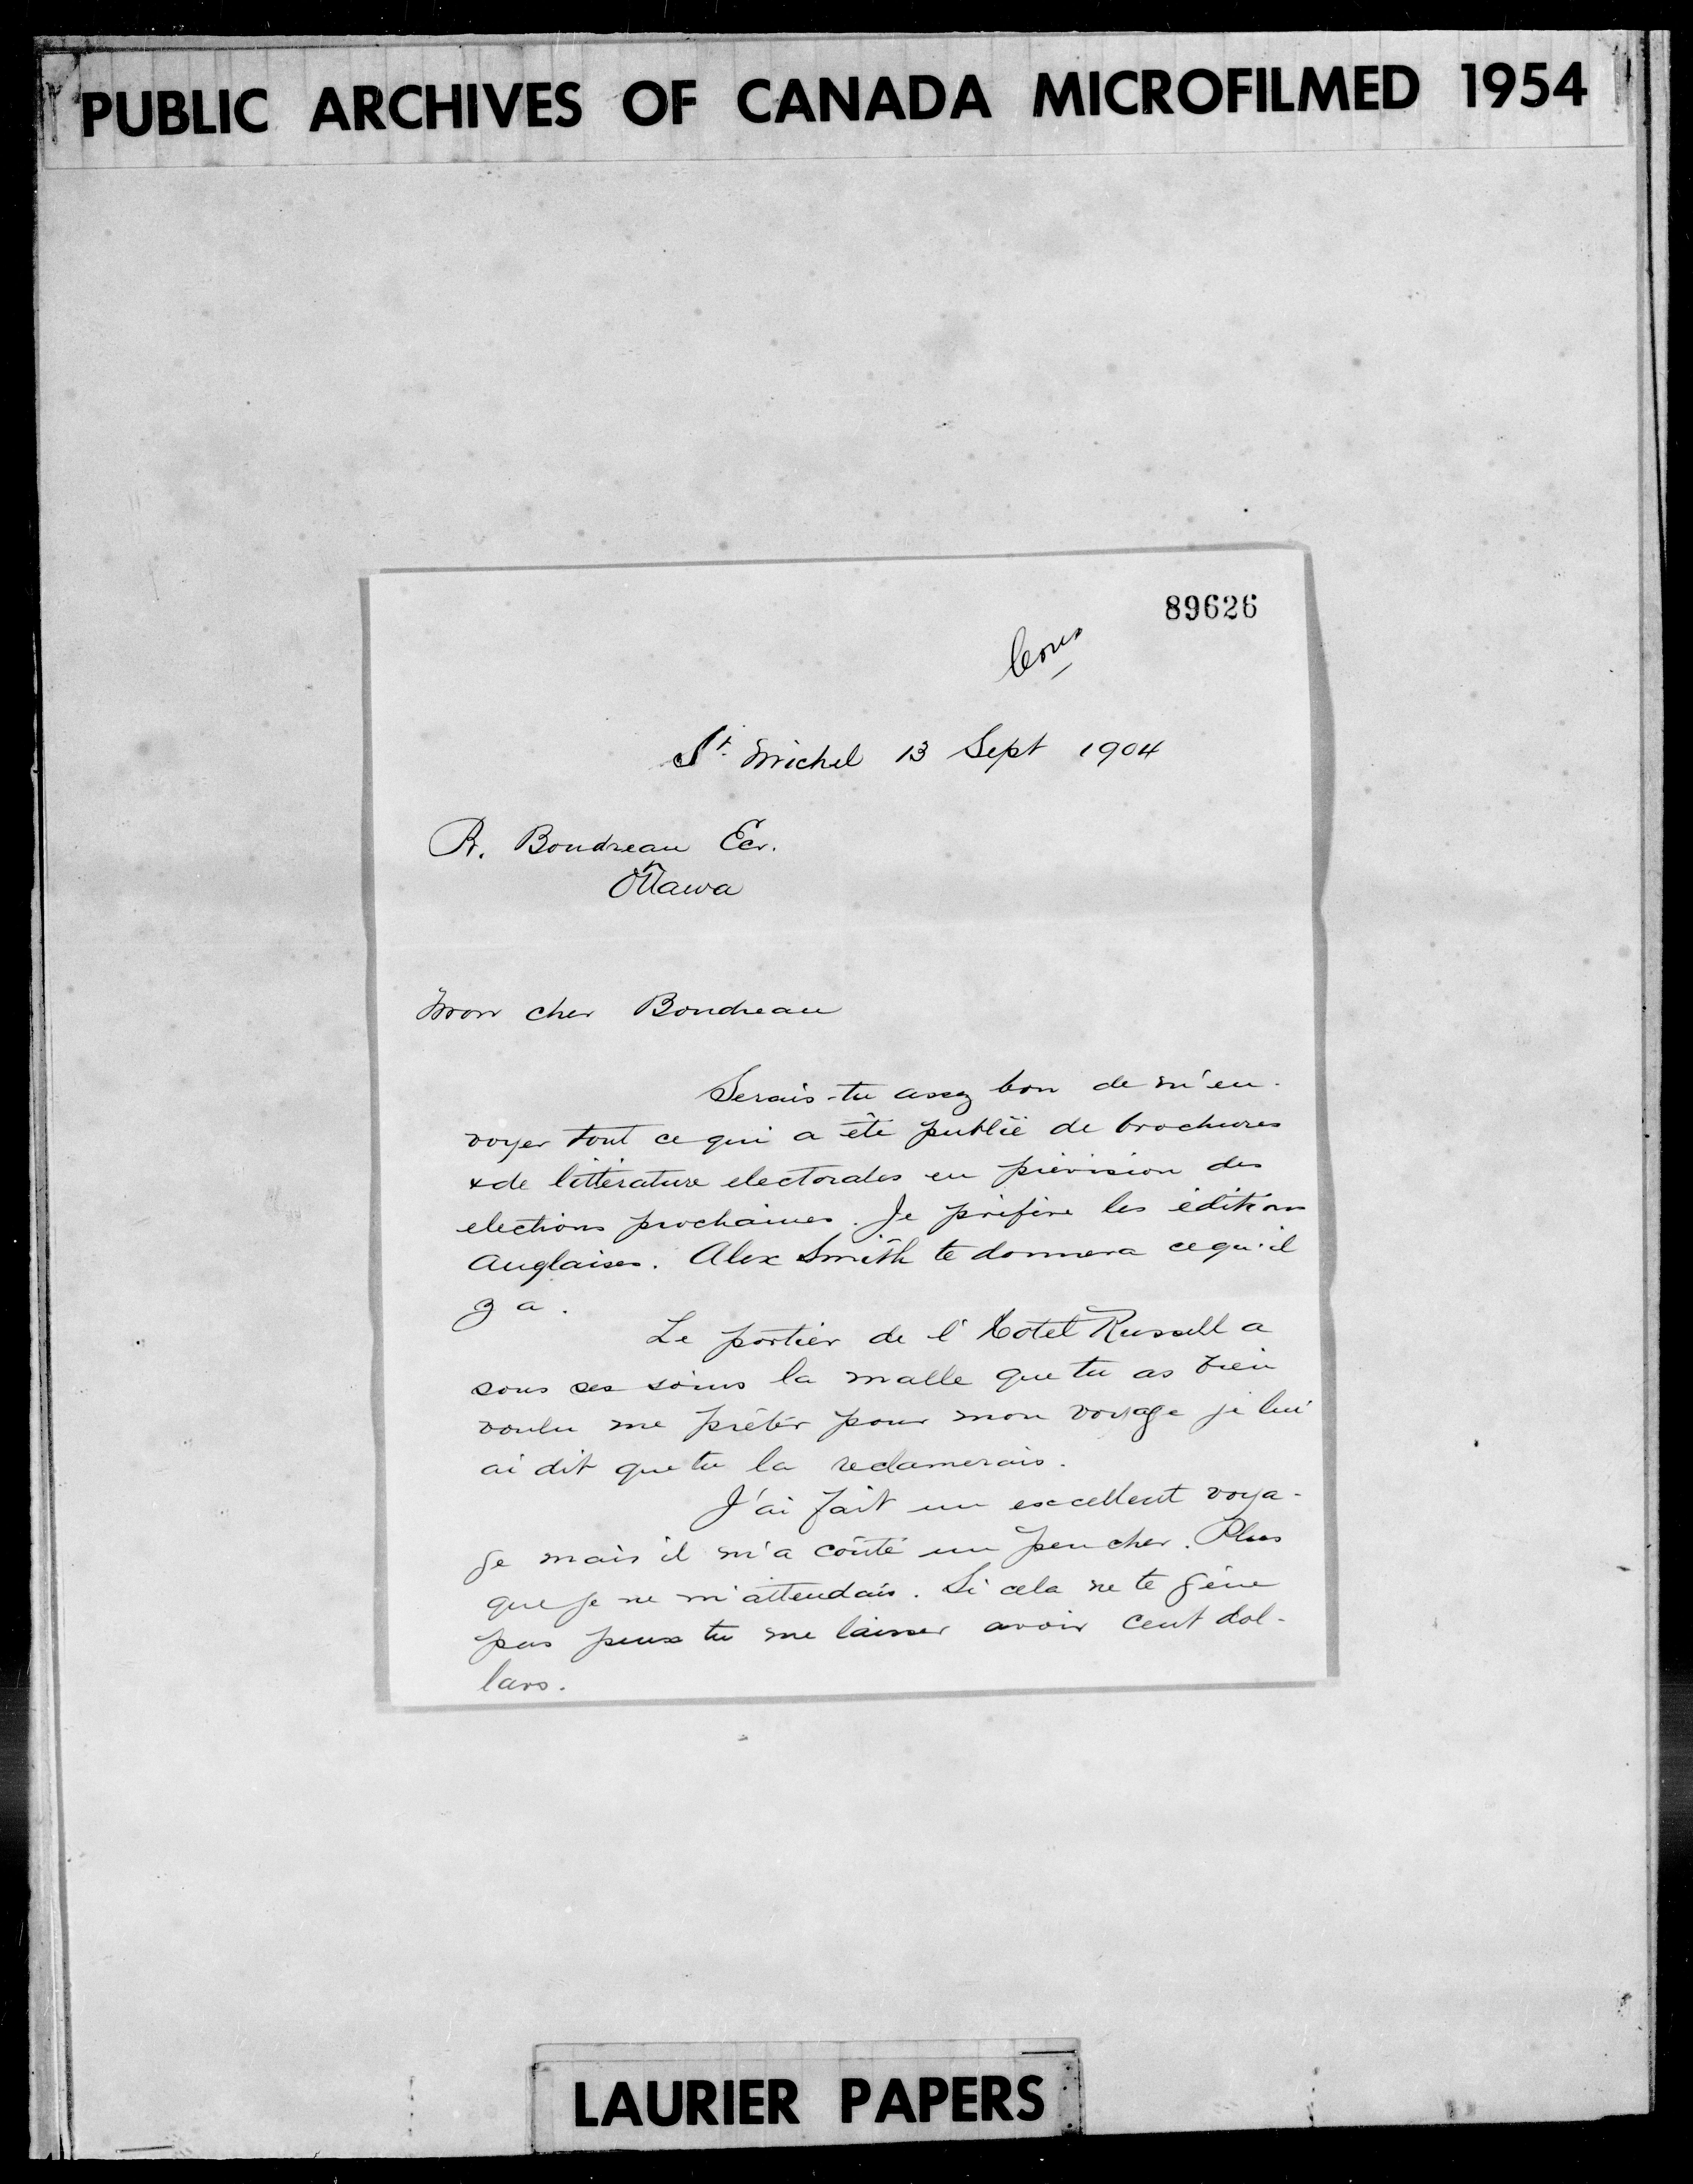 PUBLIC ARCHIVES OF CANADA MICROFILMED 1954
89626
St. Michel 13 Sept 1904
R. Boudreau Ecr.
Ottawa
Mon cher Boudreau
Serais-tu assez bon de m'en-
voyer tout ce qui a été publié de brochures
& de littérature electorales en prévision des
elections prochaines. Je préfère les éditions
Anglaises. Alex Smith te donnera ce qu'il
y a.
Le portier de l'Hotel Russell a
sous ses soins la malle que tu as bien
voulu me prêter pour mon voyage je lui
ai dit que tu la reclamerais.
J'ai fait un excellent voya-
ge mais il m'a coûté un peu cher. Plus
que je ne m'attendais. Si cela ne te gêne
pas peux tu me laisser avoir cent dol-
lars.
LAURIER PAPERS